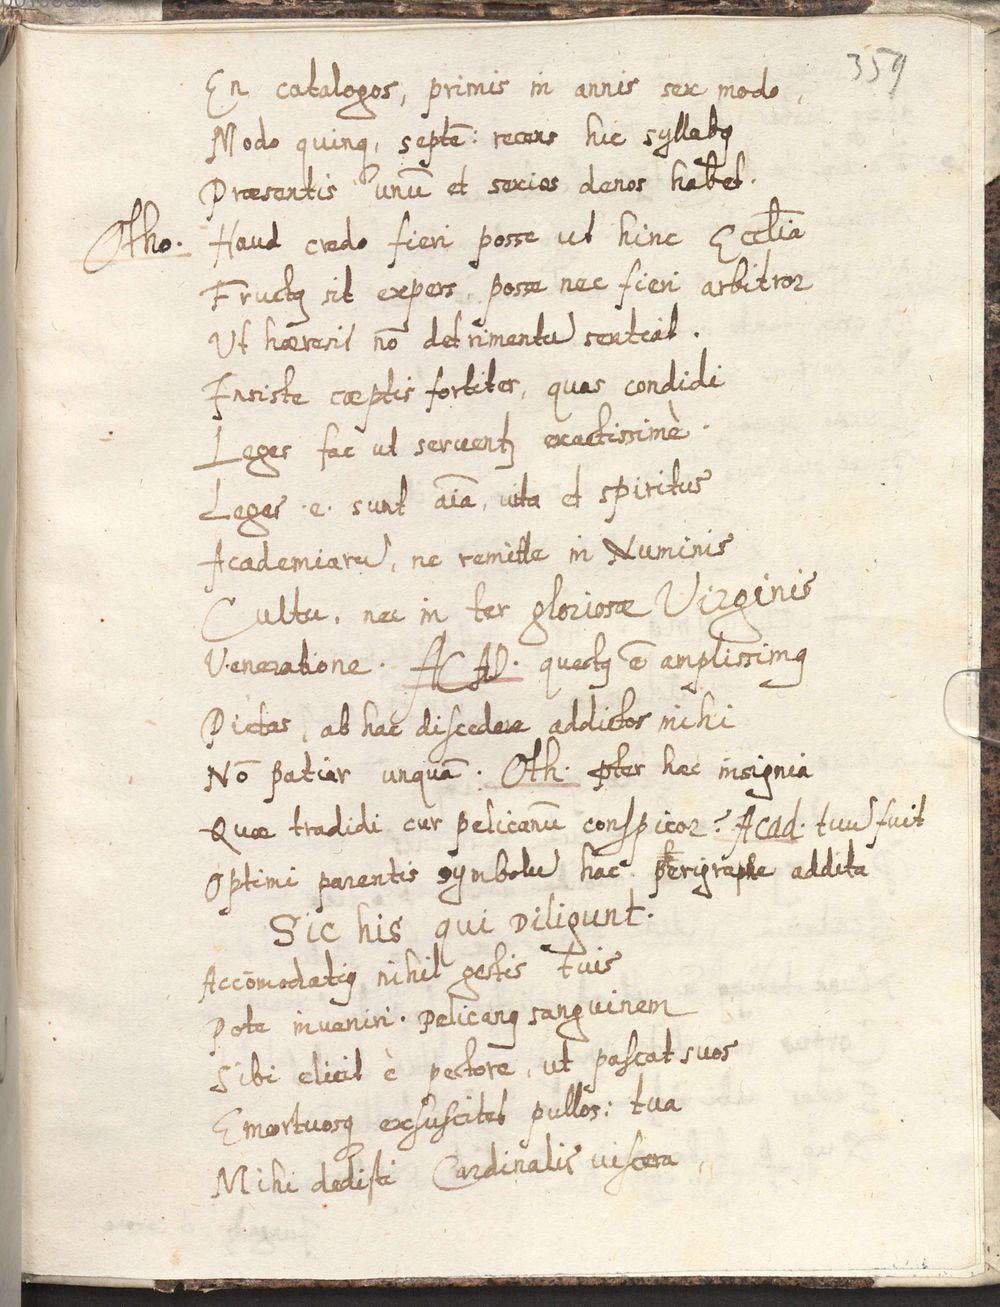 359
En catalogos, primis in annis sex modo,
Modo quinq, septē: recens hic syllabꝯ
Præsentis unū et sexies denos habet.
Otho. Haud credo fieri posse ut hinc Eccl̄ia
Fructꝯ sit expers, posse nec fieri arbitror
Ut hæresis nō detrimentū sentiat.
Insiste cœptis fortiter, quas condidi
Leges fac ut serventꝯ exactissimè.
Leges .e. sunt aīa, vita et spiritus
Academiarū, ne remitte in Numinis
Cultu, nec in ter gloriosæ Virginis
Veneratione. ACAD. questꝯ ē amplissimꝯ
Pietas, ab hac discedere addictos mihi
Nō patiar unquā. Oth. p̄ter hac insignia
Quæ tradidi cur pelicanū conspicor? Acad. tuū fuit
Optimi parentis symbolū hac perigraphe addita
Sic his qui Diligunt.
Accōmodatiꝯ nihil gestis tuis
Pote inveniri. Pelicanꝯ sanguinem
Sibi elicit è pectore, ut pascat suos
Emortuosq exsuscitet pullos: tua
Mihi dedisti Cardinalis viscera,